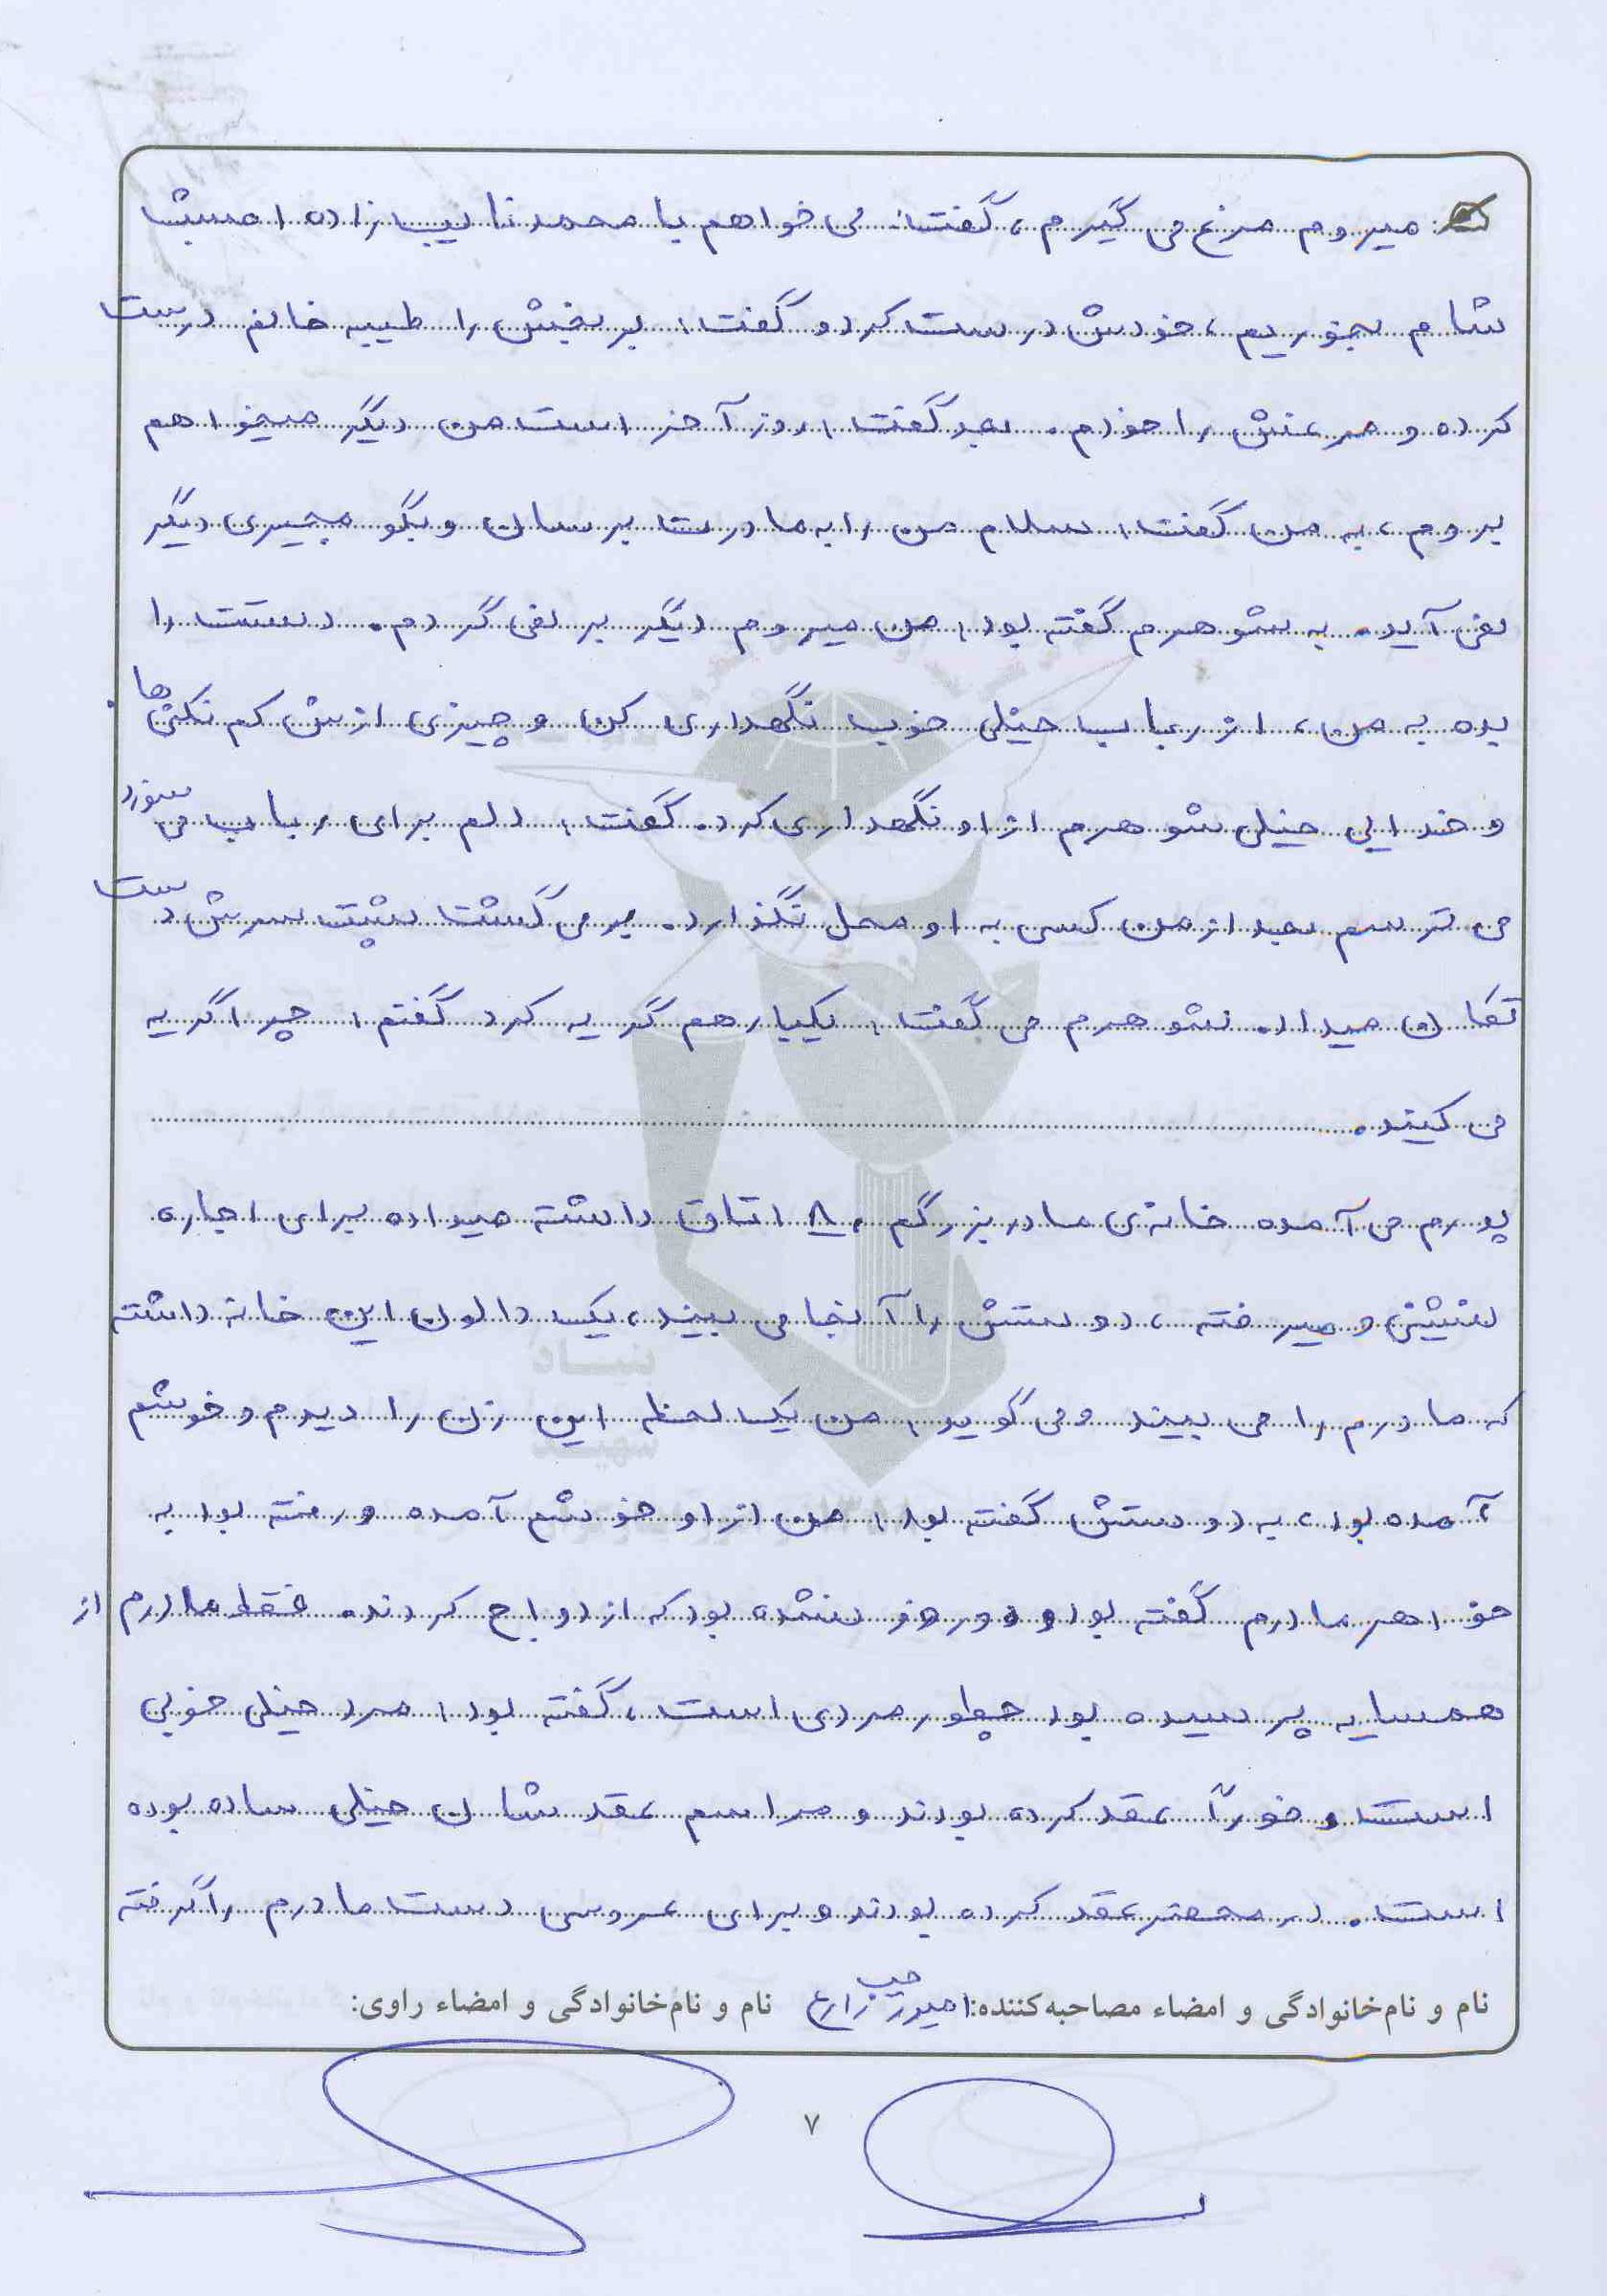 میروم مرغ می گیرم، گفت: می خواهم با محمد نایب زاده امشب
شام بخوریم، خودش درست کرد و گفت: بر بخش را طیبه خانم درست
کرده و مرغش را خودم. بعد گفت: روز آخر است من دیگر میخواهم
بروم، به من گفت: سلام من را به مادرت برسان و بگو مجیری دیگر
نمی آید. به شوهرم گفته بود: من میروم دیگر بر نمی گردم. دستت را
بده به من، از رباب خیلی خوب نگهداری کن و چیزی ازش کم نکنی ها.
و خدایی خیلی شوهرم از او نگهداری کرد. گفت: دلم برای رباب می سوزد
می ترسم بعد از من کسی به او محل نگذارد. بر می گشت پشت سرش دست
تکان میداد. شوهرم می گفت: یکبار هم گریه کرد گفتم: چرا گریه
می کنید.
پدرم می آمده خانه‌ی مادربزرگم، ۸ اتاق داشته میداده برای اجاره
نشینی و میرفته، دوستش را آنجا می بیند، یک دالون این خانه داشته
که مادرم را می بیند و می گوید: من یک لحظه این زن را دیدم و خوشم
آمده بود، به دوستش گفته بود: من از او خوشم آمده و رفته بود به
خواهر مادرم گفته بود و دو روز نشده بود که ازدواج کردند. فقط مادرم از
همسایه پرسیده بود چطور مردی است، گفته بود: مرد خیلی خوبی
است و فوراً عقد کرده بودند و مراسم عقدشان خیلی ساده بوده
است. در محضر عقد کرده بودند و برای عروسی دست مادرم را گرفته
نام و نام‌خانوادگی و امضاء مصاحبه‌کننده: نام و نام‌خانوادگی و امضاء راوی:
۷